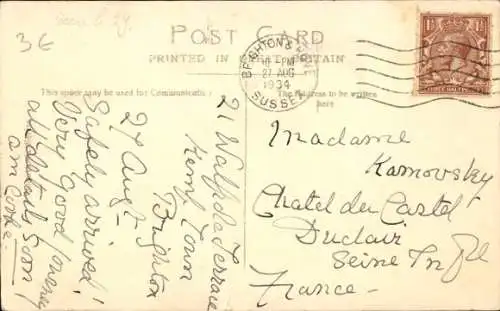 3E
POST CARD
PRINTED IN GREAT BRITAIN
This space may be used for Communication
The address to be written
here
BRIGHTON &
PM
27 AUG
1934
SUSSEX
21 Walpole Terrace
Kemp Town
Brighton
27 Augt
Safely arrived!
Very good journey
all details from
Madame
Kamovsky
Chatel du Castel
Duclair
Seine Infre
France